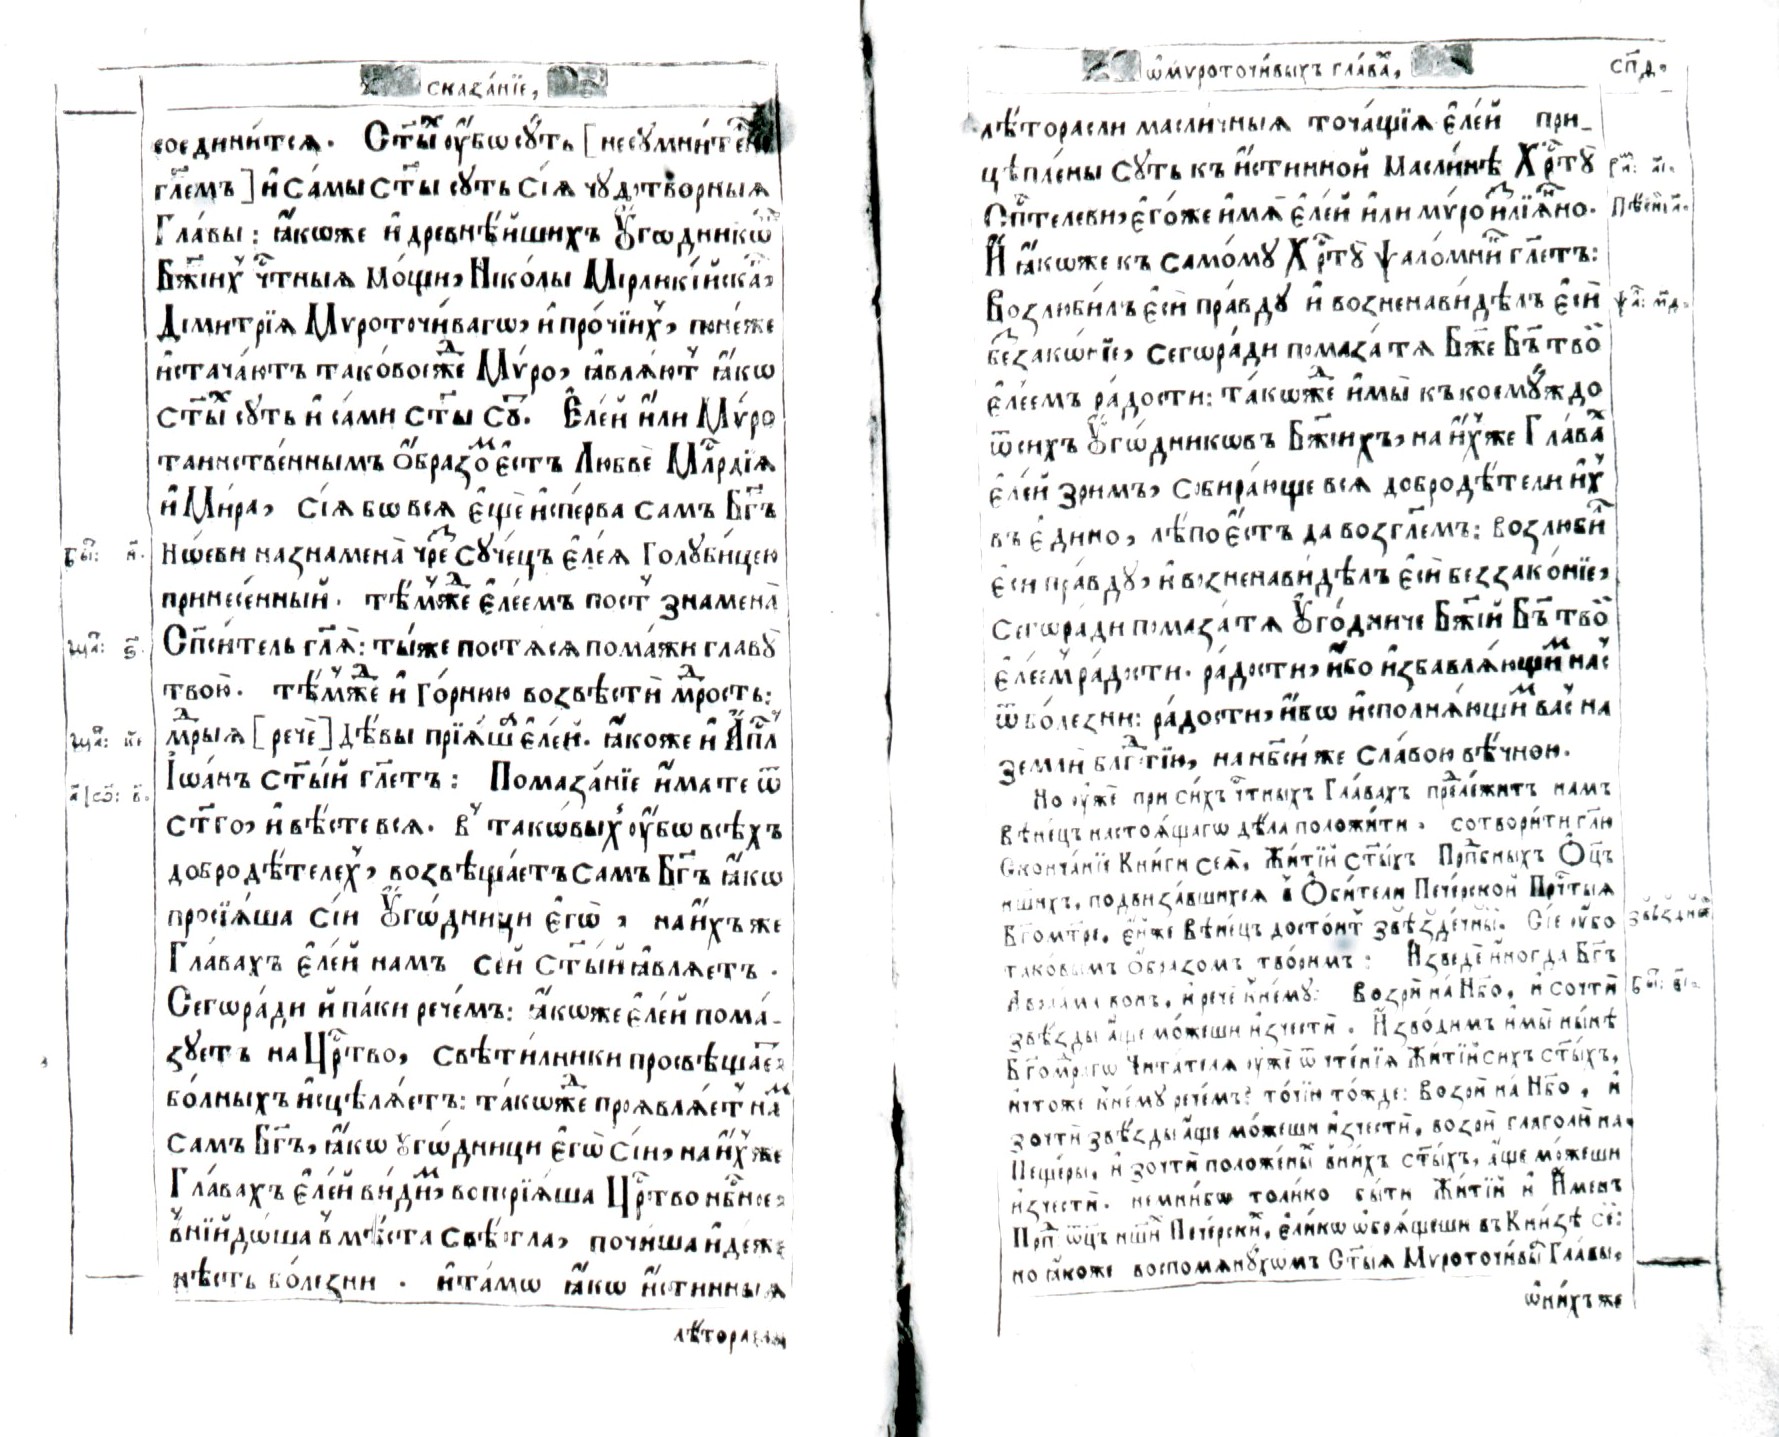 сказа́нїе,
соедини́тсѧ. Ст҃ы́хъ ᲂу҆́бѡ сꙋ́ть [несꙋмни́тенѡ
гл҃емъ] и҆ са́мы ст҃ы сꙋть сїѧ̀ чꙋдотво́рныѧ
Гла́вы: ꙗ҆́коже и҆ древнѣ́йшихъ Оу҆го́дникѡвъ
Бж҃їихъ чⷭ҇тныѧ мо́щи, Нїко́лы Мѷрлѷкі́йскагѡ,
Дими́трїѧ Мѷроточи́вагѡ, и҆ про́чїихъ, поне́же
и҆стача́ютъ таково́еже Мѵ́ро, ꙗ҆влѧ́ютъ ꙗ҆́кѡ
ст҃ы́хъ сꙋ́ть и҆ са́ми ст҃ы сꙋ. Є҆ле́й и҆лѝ Мѵ́ро
таинстве́ннымъ ѻ҆́бразомъ є҆́сть Любвѐ Млⷭ҇рдїѧ
и҆ Ми́ра, сїѧ̀ бѡ всѧ̀ є҆щѐ и҆спе́рва самъ Бг҃ъ
Нѡ́еви назнаменà чре́з сꙋче́цъ є҆ле́ѧ Голꙋби́цею
Быⷮ: и҃.
принесе́нный. тѣ́мже є҆ле́емъ по́стъ знаменà
Сп҃си́тель гл҃ѧ: ты́же постѧ́сѧ пома́жи главꙋ̀
Маⷮ: ѕ҃.
твою̀. тѣ́мже и҆ го́рнюю возвѣстѝ мⷣрость:
мⷣрыѧ [речѐ] дѣ́вы прїѧ́ша є҆ле́й. ꙗ҆́коже и҆ А҆пⷭ҇лъ
Маⷮ: к҃е
І҆ѡа́нъ ст҃ы́й гл҃етъ: Помаза́нїе и҆́мате ѿ
а҃ І҆ѡ: в҃.
ст҃гѡ, и҆ вѣ́сте всѧ̀. въ такѡвы́хъ ᲂу҆́бѡ всѣ́хъ
добродѣ́телехъ, возвѣща́етъ самъ Бг҃ъ ꙗ҆́кѡ
просїѧ́ша сїѝ Оу҆го́дницы є҆гѡ̀, на ни́хъ же
Глава́хъ є҆ле́й намъ се́й ст҃ы́й ꙗ҆влѧ́етъ.
Сегѡ̀ ра́ди и҆ па́ки рече́мъ: ꙗ҆́коже є҆ле́й пома́-
зꙋетъ на Црⷭ҇тво, свѣти́лники просвѣща́етъ
бо́лныхъ и҆сцѣлѧ́етъ: та́кѡже проѧвлѧ́етъ на́мъ
самъ Бг҃ъ, ꙗ҆́кѡ ᲂу҆го́дницы є҆гѡ̀ сїѝ, на ни́хъ же
Глава́хъ є҆ле́й ви́димъ, воспрїѧ́ша Црⷭ҇тво нбⷭ҇ное,
внїидо́ша в мѣ́ста свѣтла, почи́ша и҆дѣ́же
нѣ́сть бо́лезни. и҆ та́мѡ ꙗ҆́кѡ и҆́стинныѧ
лѣ́торасли
ѡ҆ мѷроточи́выхъ глава́хъ,
сп҃д.
лѣ́торасли ма́сличныѧ точа́щїѧ є҆ле́й при-
цѣпле́ны сꙋть къ и҆́стинной ма́слинѣ Хрⷭ҇тꙋ̀
Ри́м: а҃і.
Сп҃си́телеви, є҆го́же и҆́мѧ є҆ле́й и҆лѝ мѵ́ро и҆злїѧ́но.
Пѣ́сни: а҃.
И҆ ꙗ҆́коже къ самомꙋ̀ Хрⷭ҇тꙋ̀ ѱало́мникъ гл҃етъ:
Возлюби́лъ є҆сѝ пра́вдꙋ и҆ возненави́дѣлъ є҆сѝ
ѱаⷧ: м҃д.
беззако́нїе, сегѡ̀ ра́ди пома́за тѧ Бж҃е Бг҃ъ тво́й
є҆ле́емъ ра́дости: та́кѡже и҆ мы̀ къ коемꙋ́ждо
ѿ си́хъ Оу҆го́дникѡвъ Бж҃їихъ, на ни́хъ же Глава́хъ
є҆ле́й зри́мъ, собира́юще всѧ̀ добродѣ́тели и҆́хъ
въ є҆ди́но, лѣ́по є҆́сть да возгл҃емъ: возлюби́лъ
є҆сѝ пра́вдꙋ, и҆ возненави́дѣлъ є҆сѝ беззако́нїе,
сегѡ̀ ра́ди пома́за тѧ Оу҆го́дниче Бж҃їй Бг҃ъ тво́й
є҆ле́емъ ра́дости. ра́дости, и҆́бо и҆збавлѧ́ющимъ на́съ
ѿ бо́лезни: ра́дости, и҆́бѡ и҆сполнѧ́ющимъ ва́съ на
землѝ блгⷣтїю, на нб҃сѝ же сла́вою вѣ́чною.
Но ᲂу҆жѐ при си́хъ чⷭ҇тны́хъ Глава́хъ предлежи́тъ намъ
вѣне́цъ настоѧ́щагѡ дѣ́ла положи́ти, сотвори́ти гл҃ю
Сконча́нїе Кни́ги сеѧ̀, Житїй ст҃ы́хъ Прпⷣбныхъ Ѻ҆ц҃ъ
на́шихъ, подвиза́вшихсѧ в Ѻ҆би́тели Пече́рской Прⷭ҇тыѧ
Бг҃ома́тре, є҆́йже вѣне́цъ досто́итъ ѕвѣ́здечный. Сїѐ ᲂу҆́бо
таковы́мъ ѻ҆́бразомъ твори́мъ: И҆зведѐ и҆ногда̀ Бг҃ъ
А҆враа́ма во́нъ, и҆ речѐ к немꙋ̀: воззрѝ на Нб҃о, и҆ сочтѝ
Быⷮ: є҃і.
ѕвѣ́зды а҆́ще мо́жеши и҆зчестѝ. И҆зво́димъ и҆ мы̀ ны́нѣ
Бг҃омⷣрагѡ Чита́телѧ ᲂу҆жѐ ѿ чте́нїѧ Житїй си́хъ ст҃ы́хъ,
и҆ то́же к немꙋ̀ рече́мъ: то́чїю то́жде: воззрѝ на Нб҃о, и҆
зочтѝ ѕвѣ́зды а҆́ще мо́жеши и҆зчестѝ, воззрѝ глаго́ли на
Пеще́ры, и҆ зочтѝ положе́ныхъ в ни́хъ ст҃ы́хъ, а҆́ще мо́жеши
и҆зчестѝ. не мни́ бѡ толи́ко бы́ти Житїй и҆ И҆ме́нъ
Прпⷣ ѻ҆ц҃ъ на́шихъ Пече́рскихъ, є҆ли́кѡ ѡ҆брѧ́щеши въ Кни́зѣ се́й:
но ꙗ҆́коже воспомѧнꙋ́хѡмъ Ст҃ы́ѧ Мѷроточи́выѧ Гла́вы,
ѡ҆ ни́хъ же